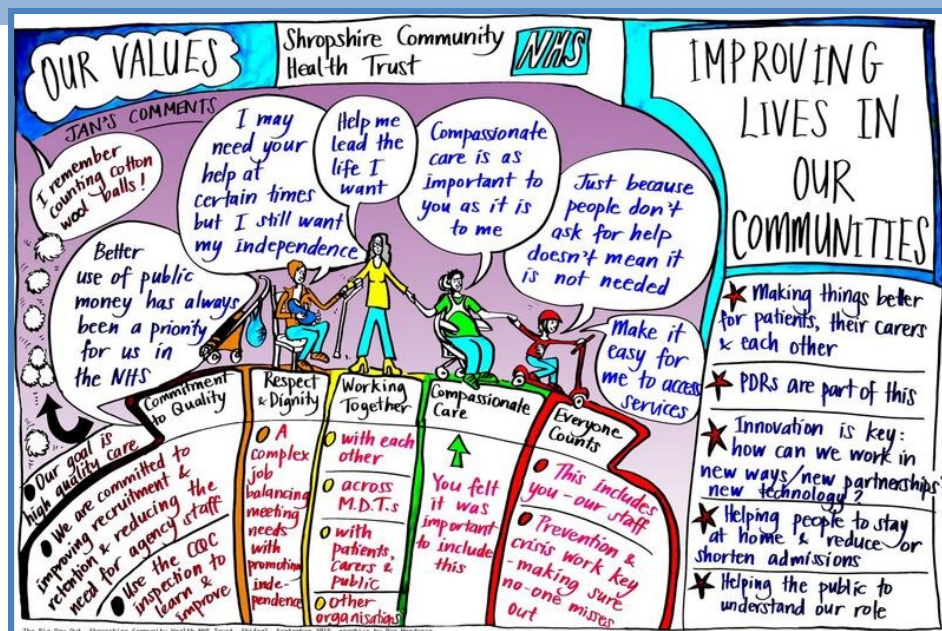 OUR VALUES
Shropshire Community
Health Trust
NHS
IMPROVING
LIVES IN
OUR
COMMUNITIES
JAN'S COMMENTS
I remember
counting cotton
wool balls!
Better
use of public
money has always
been a priority
for us in
the NHS
I may
need your
help at
certain times
but I still want
my independence
Help me
lead the
life I
want
Compassionate
care is as
important to
you as it is
to me
Just because
people don't
ask for help
doesn't mean it
is not needed
Make it
easy for
me to access
services
Commitment
to Quality
Our goal is
high quality care
We are committed to
improving recruitment &
retention & reducing the
need for agency staff
Use the CQC
inspection to
learn &
improve
Respect
& Dignity
A
complex
job
balancing
meeting
needs
with
promoting
inde-
pendence
Working
Together
with each
other
across
M.D.T.s
with
patients,
carers &
public
other
organisations
Compassionate
Care
You felt
it was
important
to include
this
Everyone
Counts
This includes
you - our staff
Prevention &
crisis work key
- making sure
no-one misses
out
Making things better
for patients, their carers
& each other
PDRs are part of this
Innovation is key:
how can we work in
new ways/new partnerships
new technology?
Helping people to stay
at home & reduce or
shorten admissions
Helping the public to
understand our role